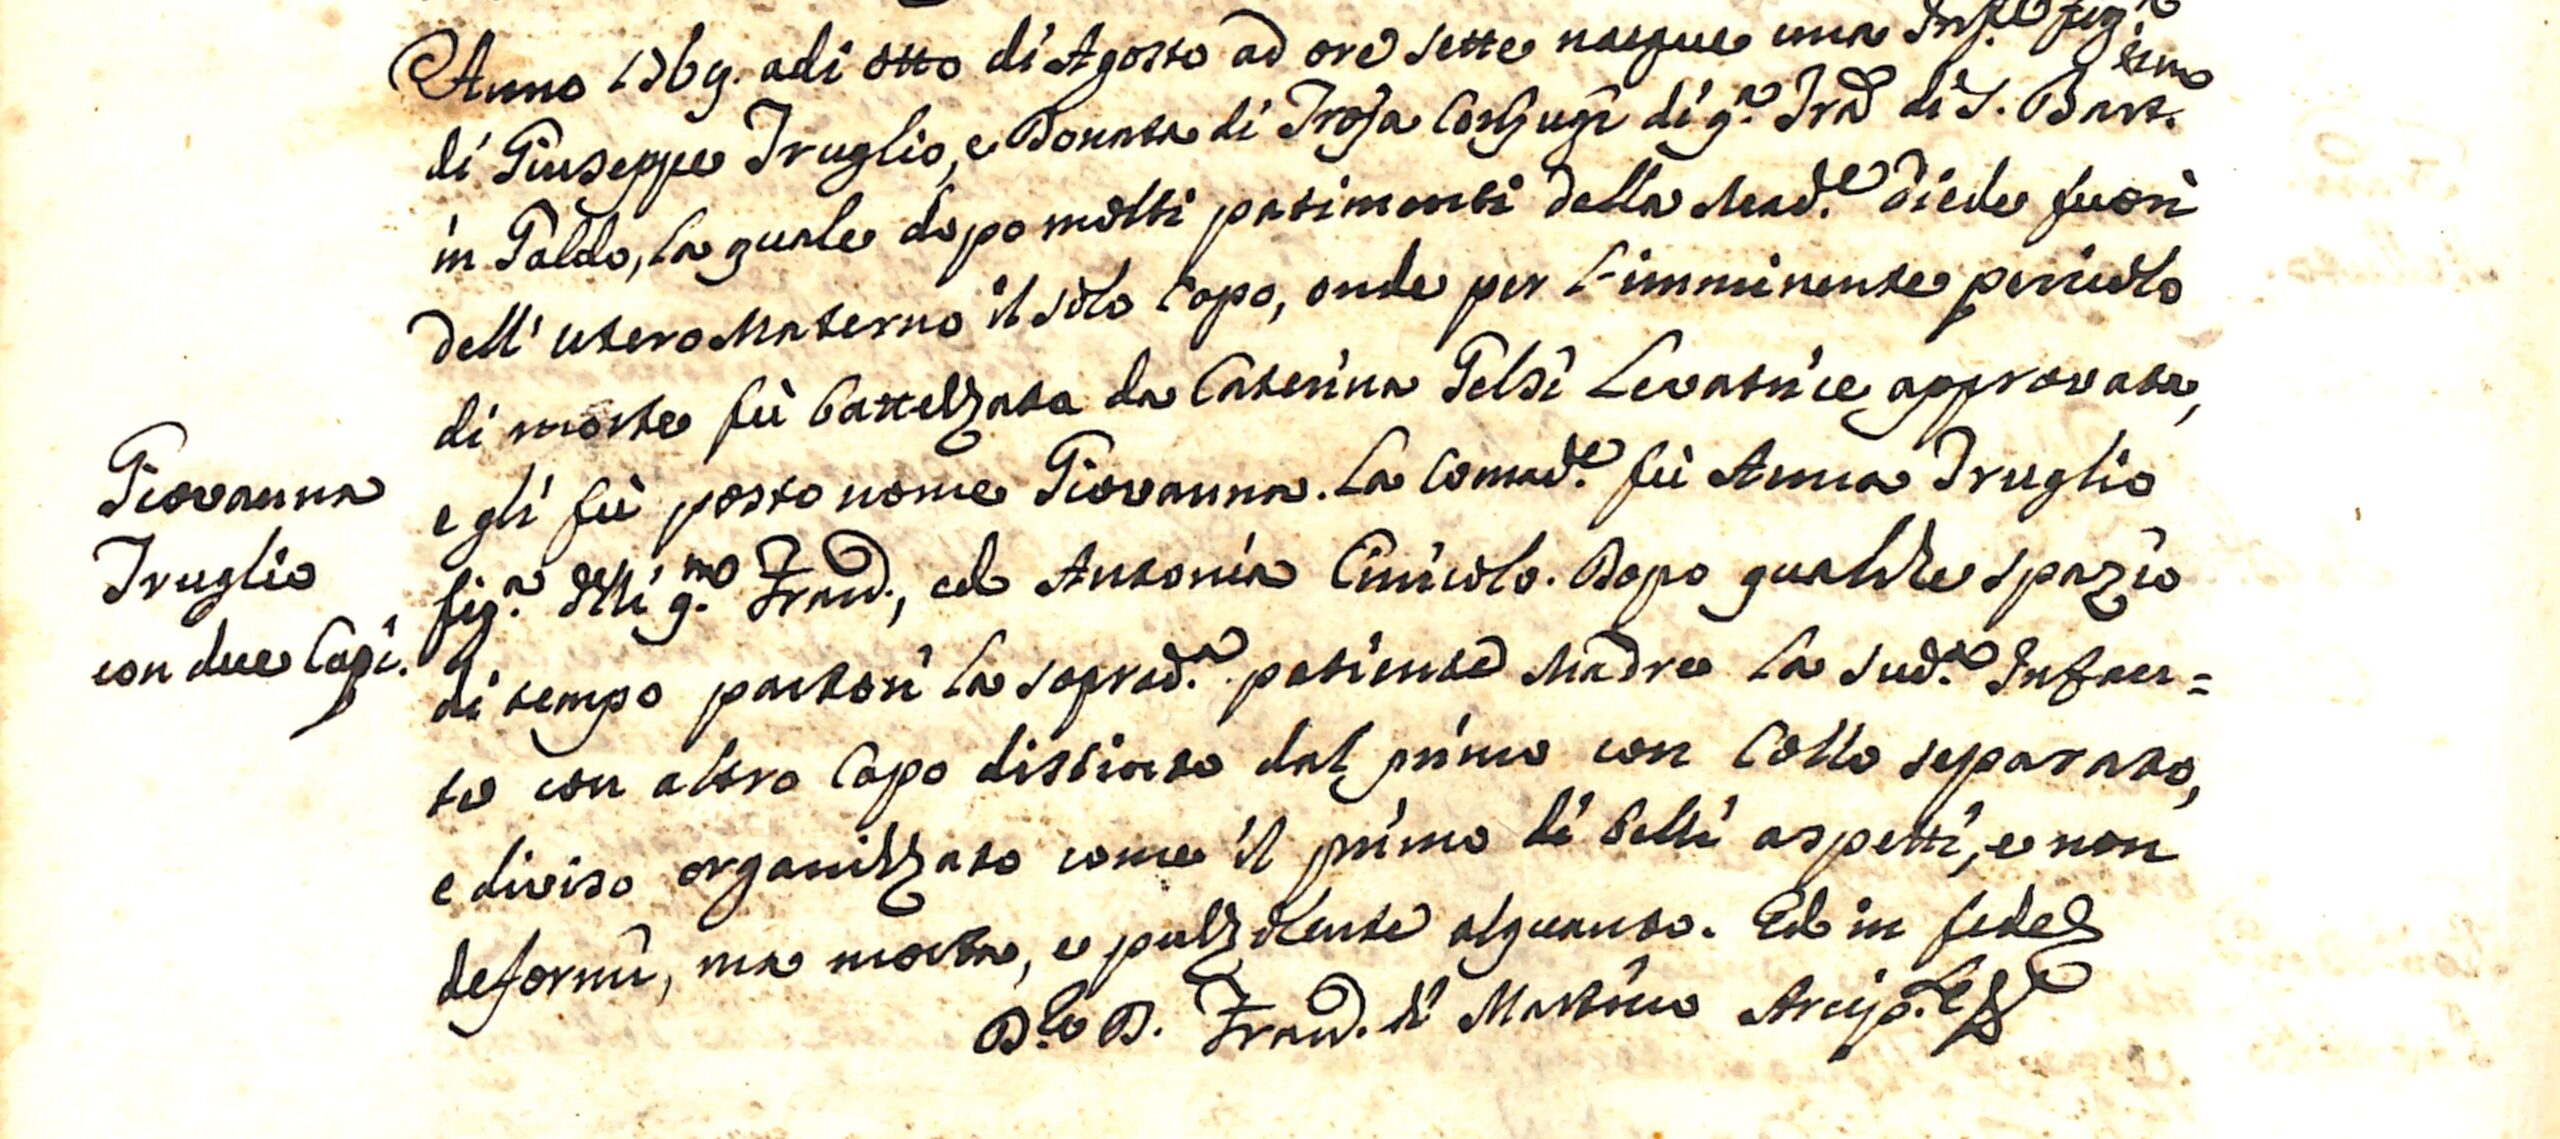 Anno 1769. adi otto di Agosto ad ore sette nacque una Inf.e fig.a
di Giuseppe Truglio, e Donata di Troja Conjugi di q.a Trã di S. Bart.meo
in Galdo, la quale dopo molti patimenti della Mad.e diede fuori
dell' utero Materno il solo Capo, onde per l'imminente pericolo
di morte fù battezzata da Caterina Gelsi Levatrice approvata,
e gli fù posto nome Giovanna. La Comad.e fù Anna Truglio
fig.a delli q.m Franc., ed Antonia Cinicolo. Dopo qualche spazio
di tempo partorì la soprad.a patiente Madre la sud.a Infan=
te con altro Capo distinto dal primo con Collo separato,
e diviso organizzato come il primo di belli aspetti, e non
deformi, ma morta, e puzzolente alquanto. Ed in fede
D.r D. Franc. di Martino Arcip.e
Giovanna
Truglio
con due Capi.